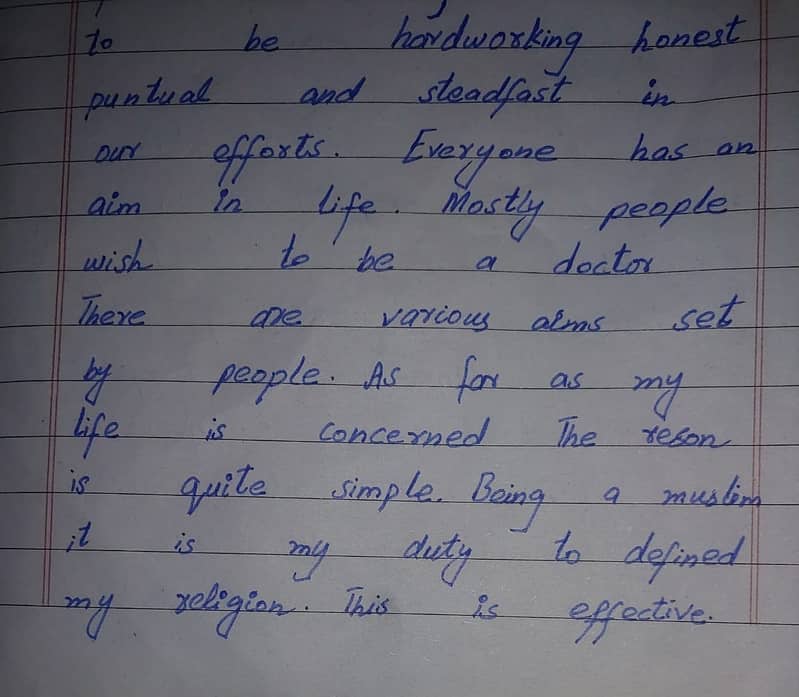 to be hardworking honest
puntual and steadfast in
our efforts. Everyone has an
aim in life. Mostly people
wish to be a doctor
There are various aims set
by people. As for as my
life is concerned The reson
is quite simple. Being a muslim
it is my duty to defined
my religion. This is effective.